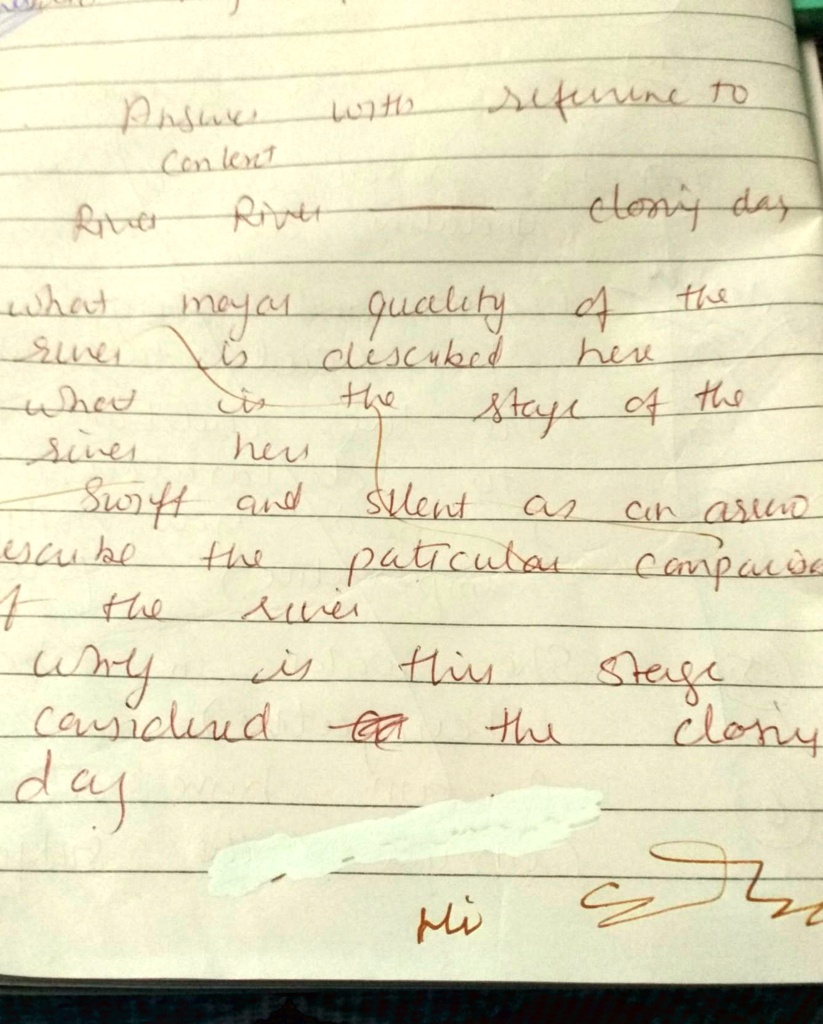 Answer with reference to
Context
River River — closing day
what major quality of the
river is described here
what is the stage of the
river here
Swift and silent as an arrow
escribe the paticular comparison
f the river
why is this stage
considered the closing
day
Hi